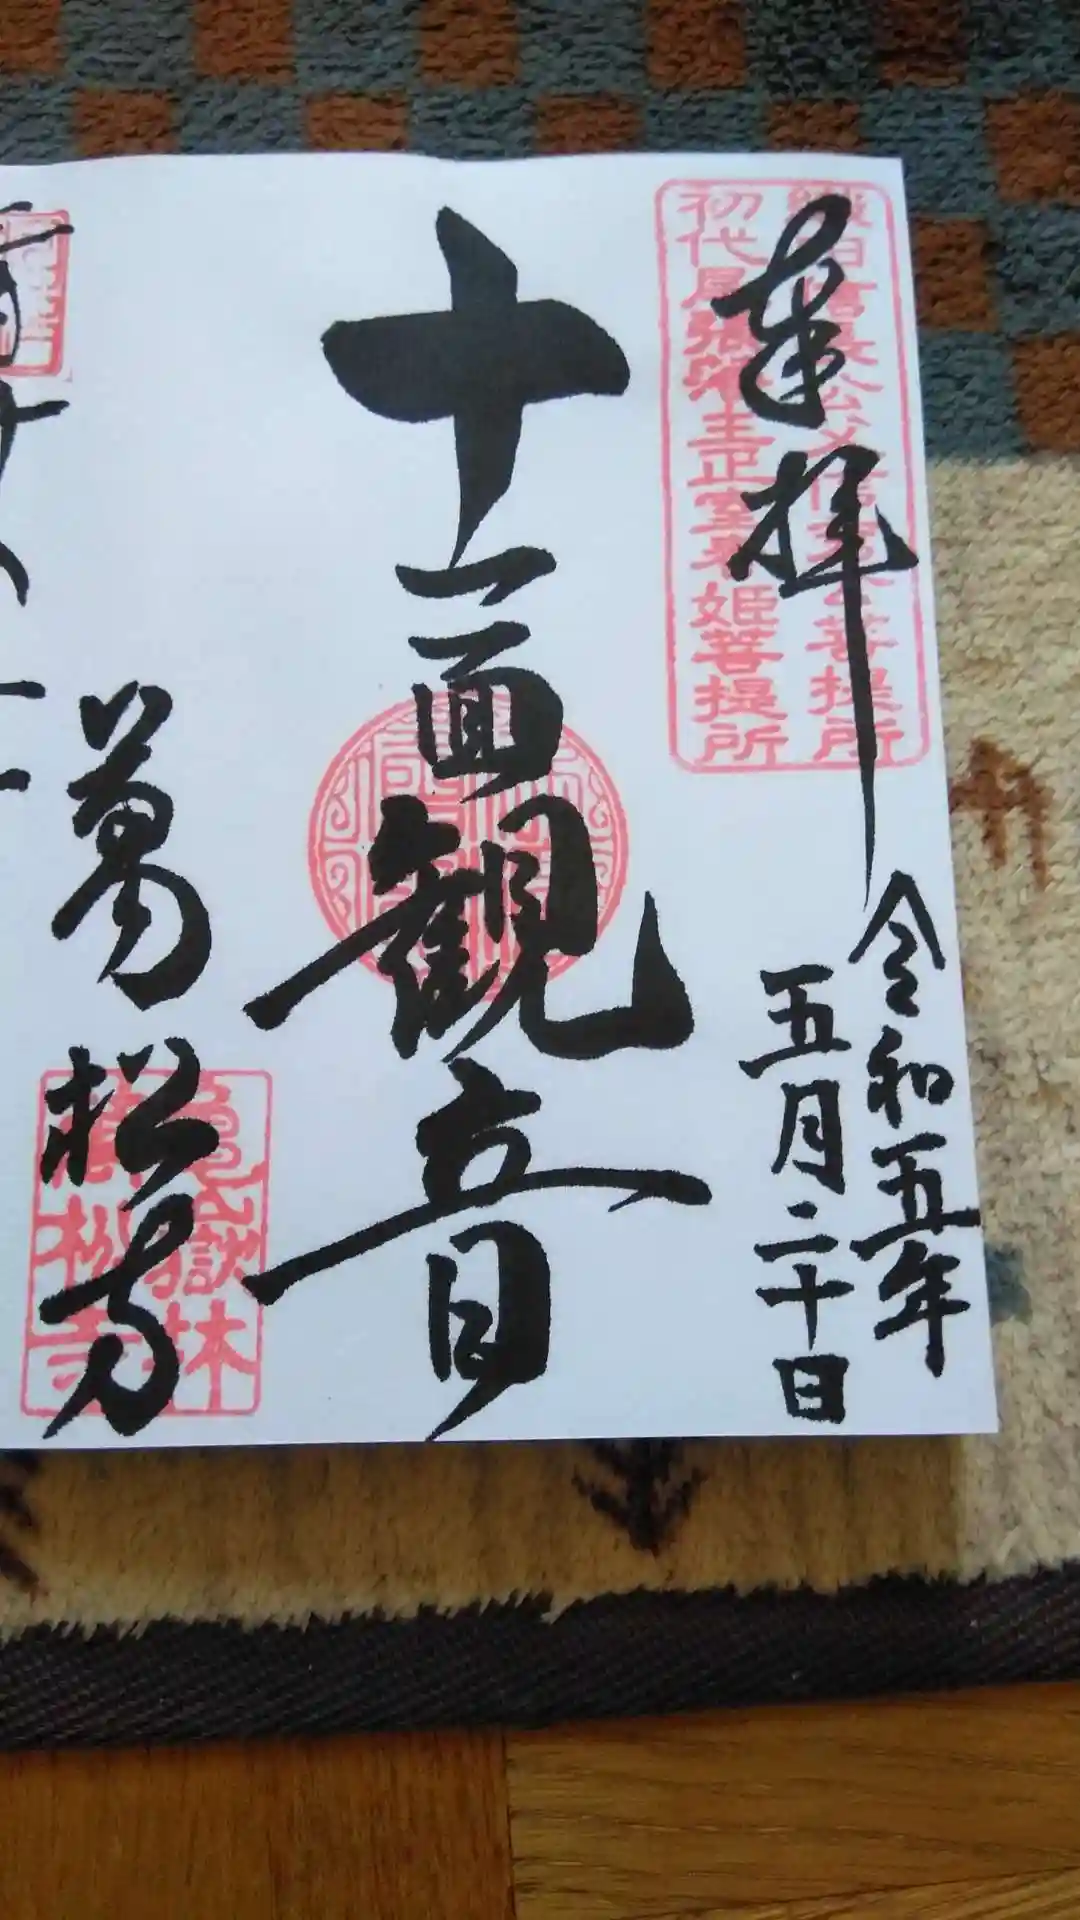 奉拝
織田信長公父信秀公菩提所
初代尾張藩主正室春姫菩提所
令和五年
五月二十日
十一面観音
萬松寺
亀嶽林
萬松寺